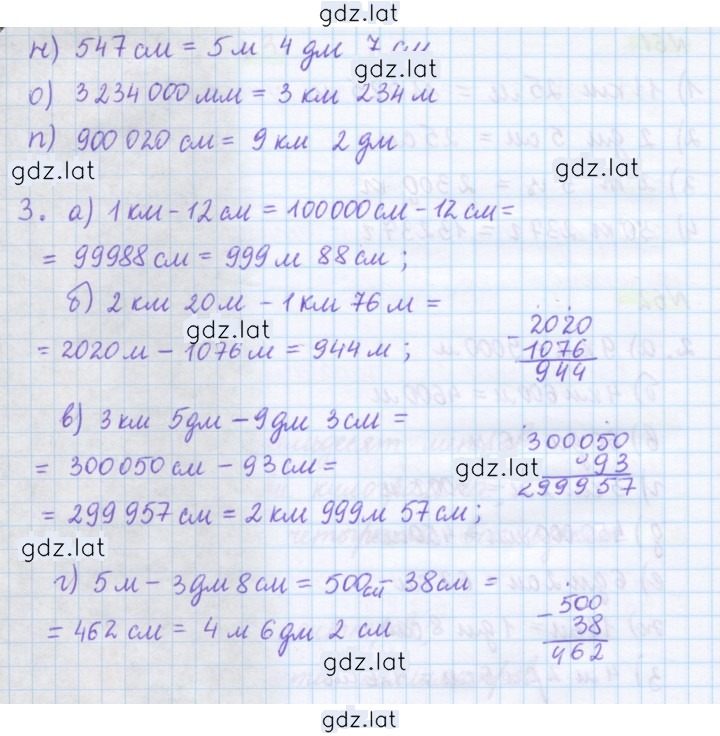 gdz.lat
н) 547 см = 5 м 4 дм 7 см
gdz.lat
о) 3 234 000 мм = 3 км 234 м
п) 900 020 см = 9 км 2 дм
gdz.lat
gdz.lat
3. а) 1 км - 12 см = 100000 см - 12 см =
= 99988 см = 999 м 88 см ;
б) 2 км 20 м - 1 км 76 м =
gdz.lat
= 2020 м - 1076 м = 944 м ;
- 2020
1076
944
в) 3 км 5 дм - 9 дм 3 см =
= 300050 см - 93 см =
gdz.lat
300050
93
299957
= 299 957 см = 2 км 999 м 57 см ;
gdz.lat
г) 5 м - 3 дм 8 см = 500 см - 38 см =
= 462 см = 4 м 6 дм 2 см
- 500
38
462
gdz.lat
gdz.lat